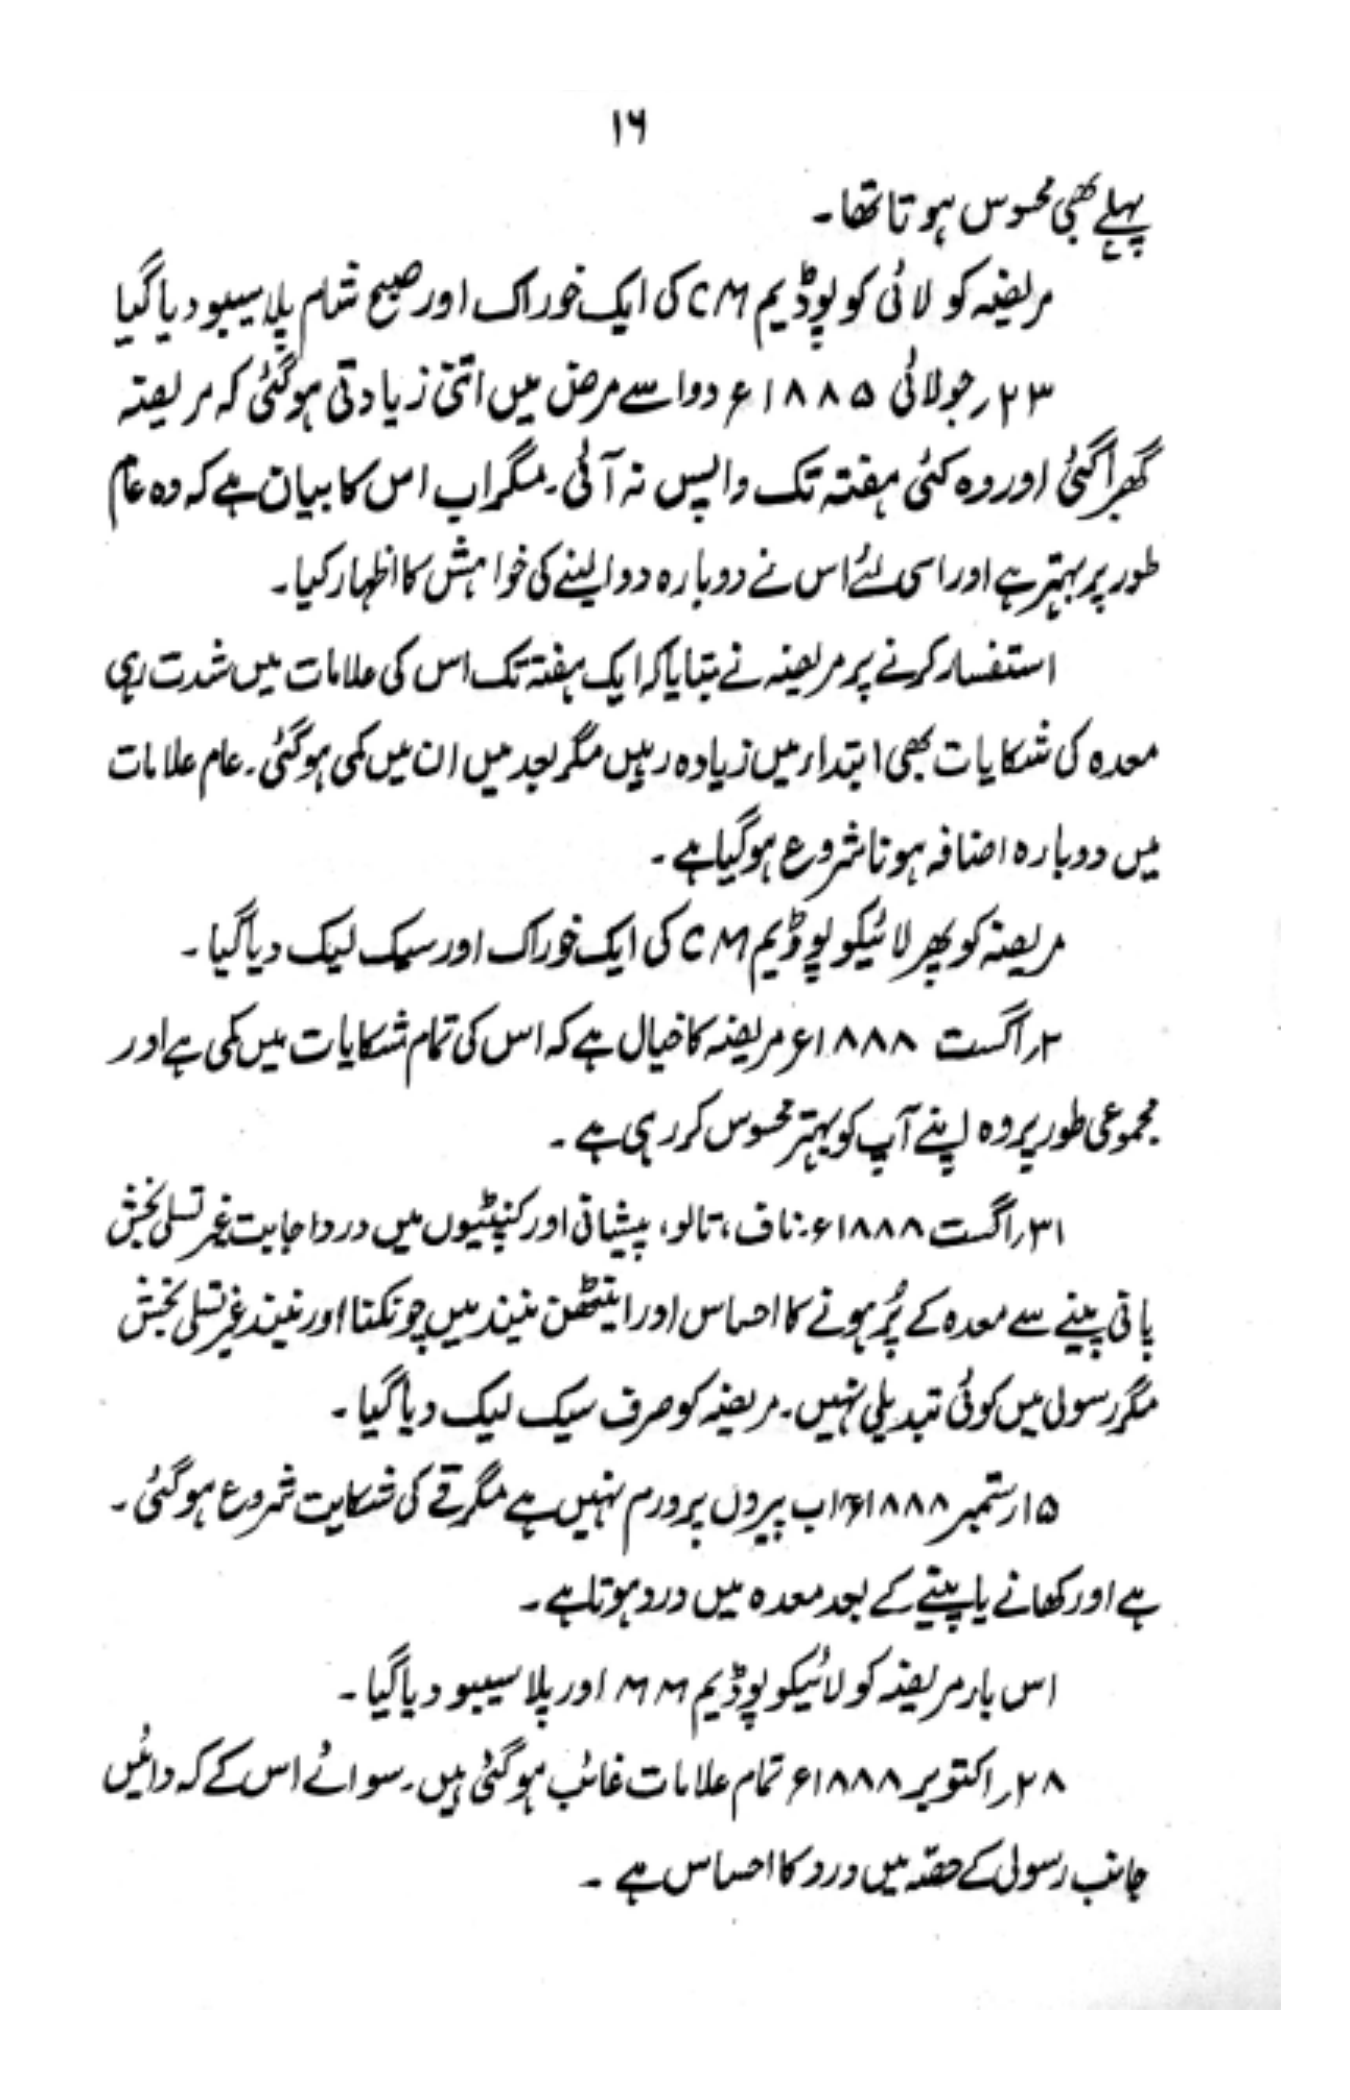 ۱۶
پہلے بھی محسوس ہوتا تھا۔
مریضہ کو لائی کو پوڈیم CM کی ایک خوراک اور صبح شام پلاسیبو دیا گیا
۲۳ر جولائی ۱۸۸۵ء دوا سے مرض میں اتنی زیادتی ہوگئی کہ مریضہ
گھبرا گئی اور وہ کئی ہفتہ تک واپس نہ آئی۔ مگر اب اس کا بیان ہے کہ وہ عام
طور پر بہتر ہے اور اسی لئے اس نے دوبارہ دوا لینے کی خواہش کا اظہار کیا۔
استفسار کرنے پر مریضہ نے بتایا کہ ایک ہفتہ تک اس کی علامات میں شدت رہی
معدہ کی شکایات بھی ابتداء میں زیادہ رہیں مگر بعد میں ان میں کمی ہوگئی۔ عام علامات
میں دوبارہ اضافہ ہونا شروع ہوگیا ہے۔
مریضہ کو پھر لائیکو پوڈیم CM کی ایک خوراک اور سیک لیک دیا گیا۔
۲ر اگست ۱۸۸۸ء مریضہ کا خیال ہے کہ اس کی تمام شکایات میں کمی ہے اور
مجموعی طور پر وہ اپنے آپ کو بہتر محسوس کر رہی ہے۔
۳۱ر اگست ۱۸۸۸ء۔ ناف، تالو، پیشانی اور کنپٹیوں میں درد اجابت غیر تسلی بخش
پانی پینے سے معدہ کے پُر ہونے کا احساس اور اینٹھن نیند میں چونکنا اور نیند غیر تسلی بخش
مگر رسولی میں کوئی تبدیلی نہیں۔ مریضہ کو صرف سیک لیک دیا گیا۔
۱۵ر ستمبر ۱۸۸۸ء اب پیروں پر ورم نہیں ہے مگر قے کی شکایت شروع ہوگئی۔
ہے اور کھانے یا پینے کے بعد معدہ میں درد ہوتا ہے۔
اس بار مریضہ کو لائیکو پوڈیم MM اور پلاسیبو دیا گیا۔
۲۸ر اکتوبر ۱۸۸۸ء تمام علامات غائب ہوگئی ہیں۔ سوائے اس کے کہ دائیں
جانب رسولی کے حصّہ میں درد کا احساس ہے۔